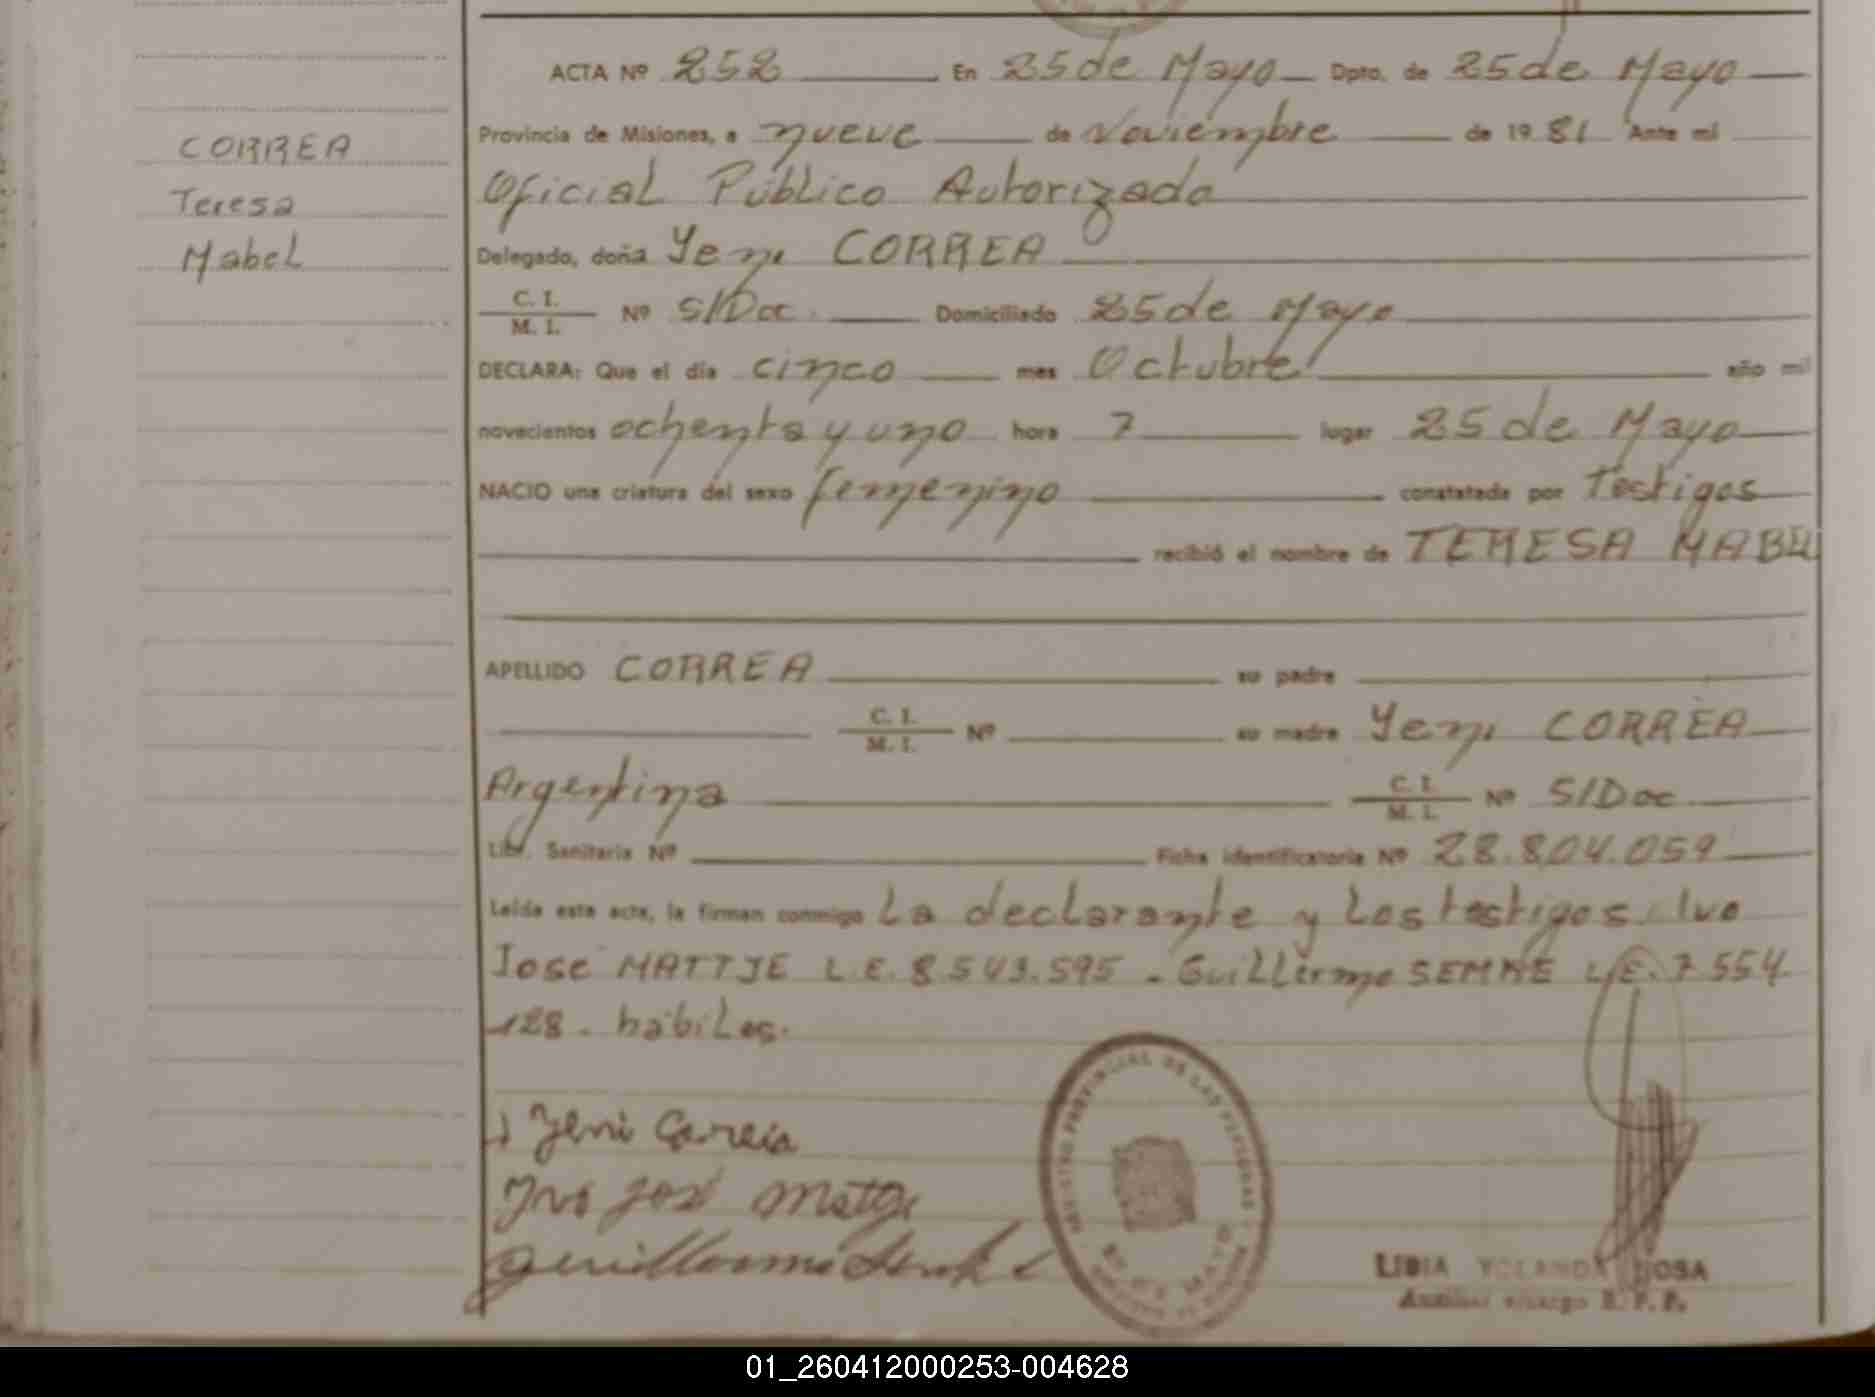 CORREA
Teresa
Mabel
ACTA Nº 252 En 25 de Mayo Dpto. de 25 de Mayo
Provincia de Misiones, a nueve de Noviembre de 19 81 Ante mi
Oficial Público Autorizada
Delegado, doña Yeni CORREA
C. I.
M. I. Nº S/Doc. Domiciliado 25 de Mayo
DECLARA: Que el día cinco mes Octubre año mil
novecientos ochenta y uno hora 7 lugar 25 de Mayo
NACIO una criatura del sexo femenino constatada por Testigos
recibió el nombre de TERESA MABEL
APELLIDO CORREA su padre
C. I.
M. I. Nº su madre Yeni CORREA
Argentina C. I.
M. I. Nº S/Doc
Libr. Sanitaria Nº Ficha identificatoria Nº 28.804.059
Leída esta acta, la firman conmigo La declarante y Los testigos: Ivo
José MATTJE L.E. 8.543.595 - Guillermo L.E. 7.554
128 - hábiles.
Yeni Correia
Ivo José
REGISTRO PROVINCIAL DE LAS PERSONAS
25 DE MAYO
LIBIA YOLANDA
Auxiliar R. P. P.
01_260412000253-004628